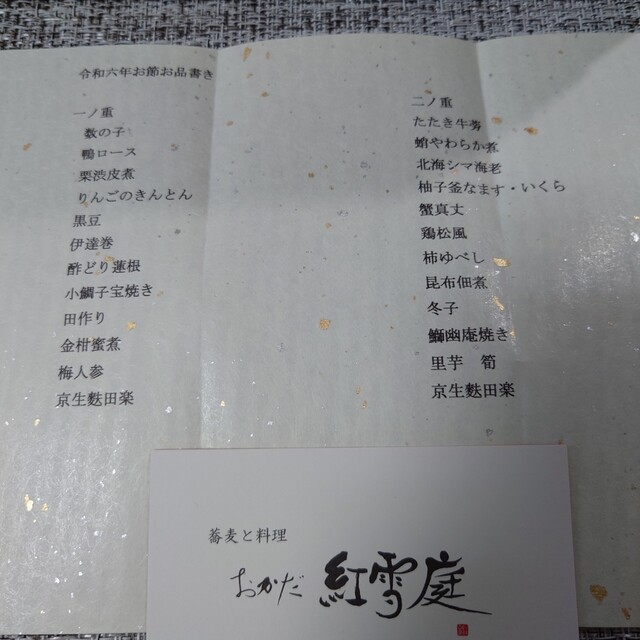 令和六年お節お品書き
一ノ重
数の子
鴨ロース
栗渋皮煮
りんごのきんとん
黒豆
伊達巻
酢どり蓮根
小鯛子宝焼き
田作り
金柑蜜煮
梅人参
京生麩田楽
二ノ重
たたき牛蒡
蛸やわらか煮
北海シマ海老
柚子釜なます・いくら
蟹真丈
鶏松風
柿ゆべし
昆布佃煮
冬子
鰤幽庵焼き
里芋 筍
京生麩田楽
蕎麦と料理
おかだ 紅雪庭